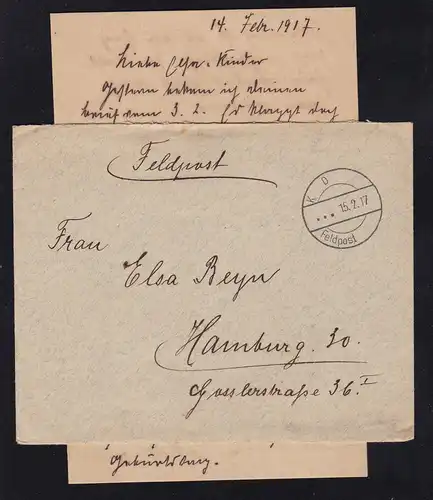 14. Febr. 1917.
Liebe Elsa + Kinder
Gestern bekam ich deinen
Brief vom 3. 2. Es klappt doch
Feldpost
K D
15.2.17
Feldpost
Frau
Elsa Beyn
Hamburg. 30.
Gosslerstraße 36 I
Geburtstag.